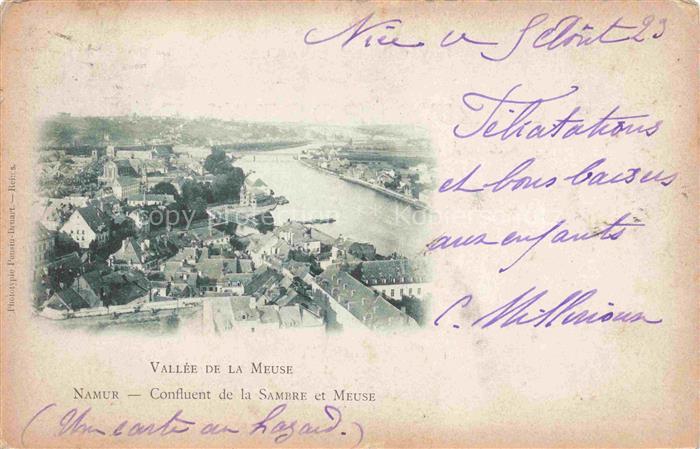 Nice le 5 Août 23
Félicitations
et bons baisers
aux enfants
C. Millerioux
Phototypie Ponsin-Druart. — Reims.
copyright Kopierschutz
VALLÉE DE LA MEUSE
NAMUR — Confluent de la SAMBRE et MEUSE
(Une carte au hazard.)